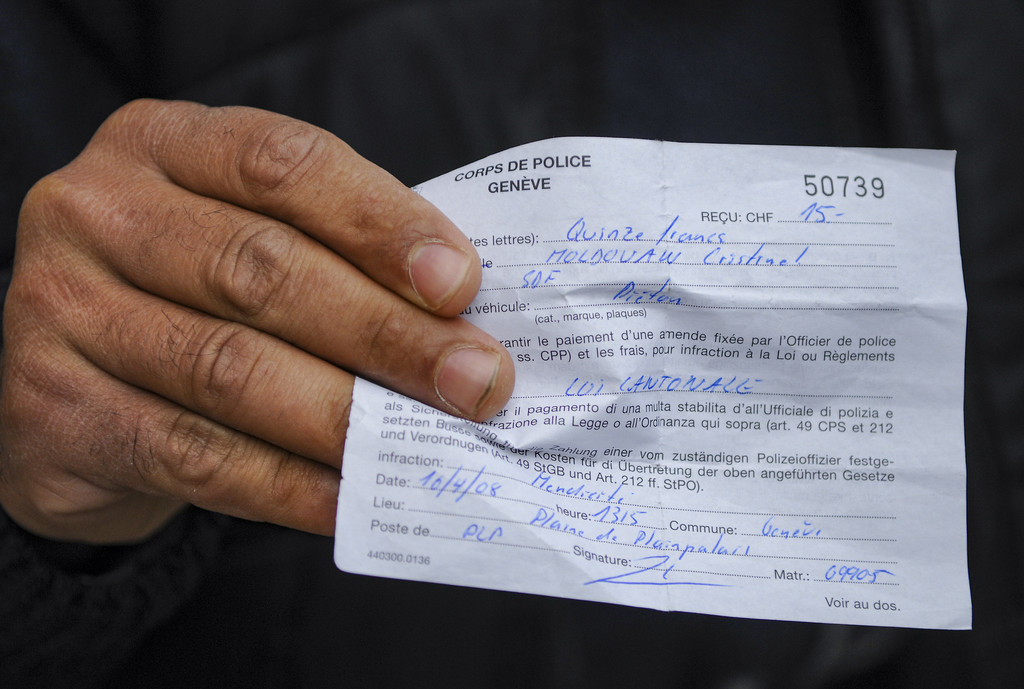 CORPS DE POLICE
GENÈVE
50739
REÇU: CHF 15.-
tes lettres): Quinze francs
le MOLDOVAN Cristinel
SDF
u véhicule: Piéton
(cat., marque, plaques)
rantir le paiement d'une amende fixée par l'Officier de police
ss. CPP) et les frais, pour infraction à la Loi ou Règlements
LOI CANTONALE
er il pagamento di una multa stabilita d'all'Ufficiale di polizia e
nfrazione alla Legge o all'Ordinanza qui sopra (art. 49 CPS et 212
als Sicherstellung Zahlung einer vom zuständigen Polizeioffizier festge-
setzten Busse sowie der Kosten für di Übertretung der oben angeführten Gesetze
und Verordnugen (Art. 49 StGB und Art. 212 ff. StPO).
infraction: Mendicité
Date: 10/4/08 heure: 1315 Commune: Genève
Lieu: Plaine de Plainpalais
Poste de PLP Signature: Matr.: 09905
440300.0136
Voir au dos.